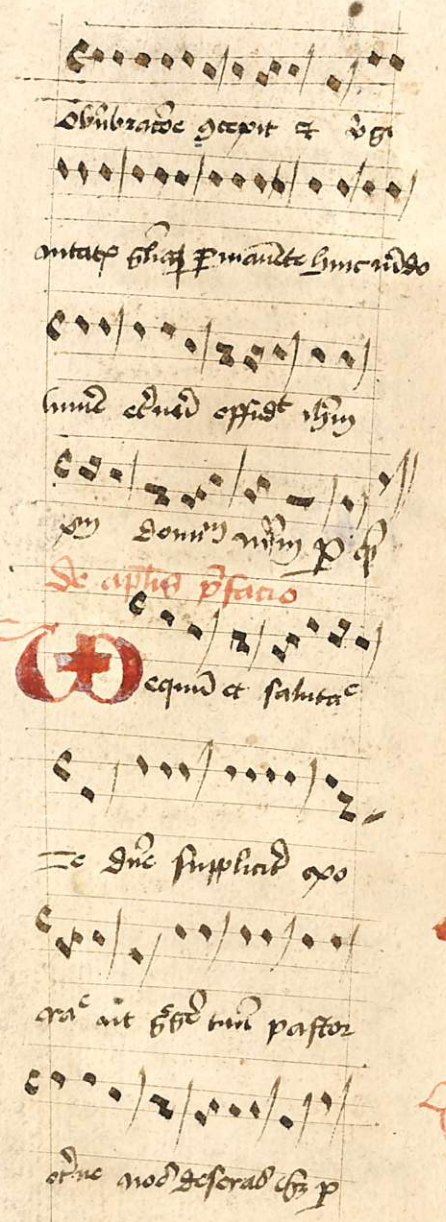 Obūbratōe ꝯcepit et v̓gi
nitatꝭ gl̄ia ꝑmanēte huic mūdo
lumē et̓nū effudᵗ ih̄m
xp̄m domin̄ nr̄m ꝑ quē
De ap̄lis p̄facio
equū et salutaᵉ
Te dn̄e suppliciť exo
raᵉ ut gᵉgē tuū pastor
et̓ne nō deseras sꝫ ꝑ